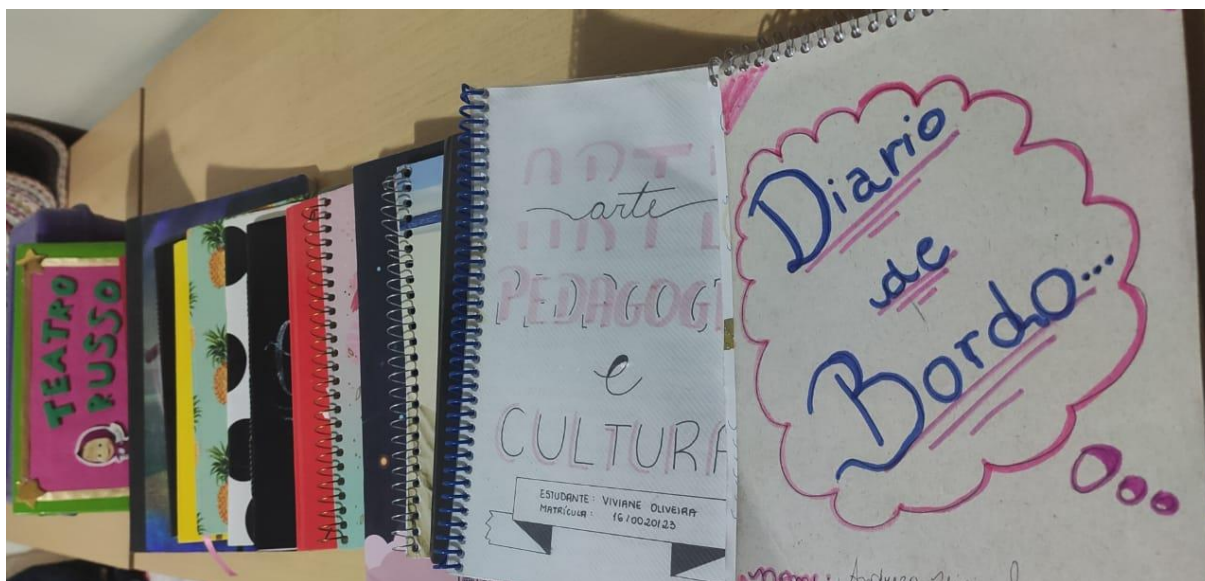 TEATRO
RUSSO
ARTE
arte
PEDAGOGI
e
CULTURA
ESTUDANTE: VIVIANE OLIVEIRA
MATRÍCULA: 16/0020123
Diario
de
Bordo...